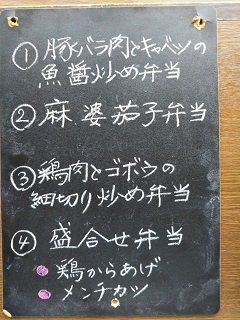 ① 豚バラ肉とキャベツの
魚醤炒め弁当
② 麻婆茄子弁当
③ 鶏肉とゴボウの
細切り炒め弁当
④ 盛合せ弁当
● 鶏からあげ
● メンチカツ